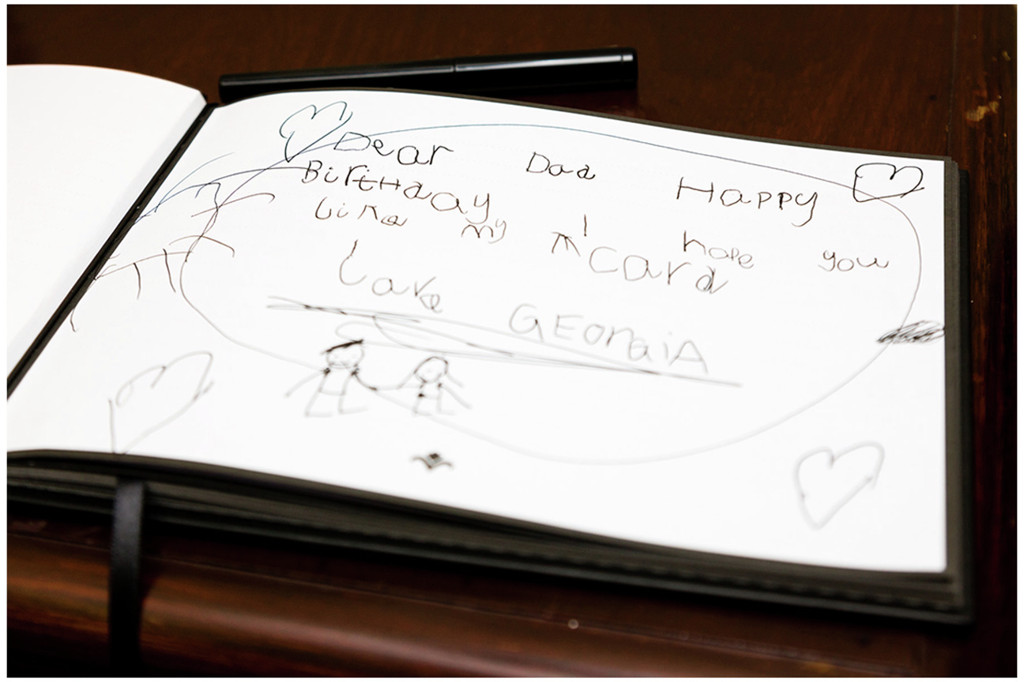 Dear Dad Happy
Birthday I hope you
Like my card
Love GEOrgiA